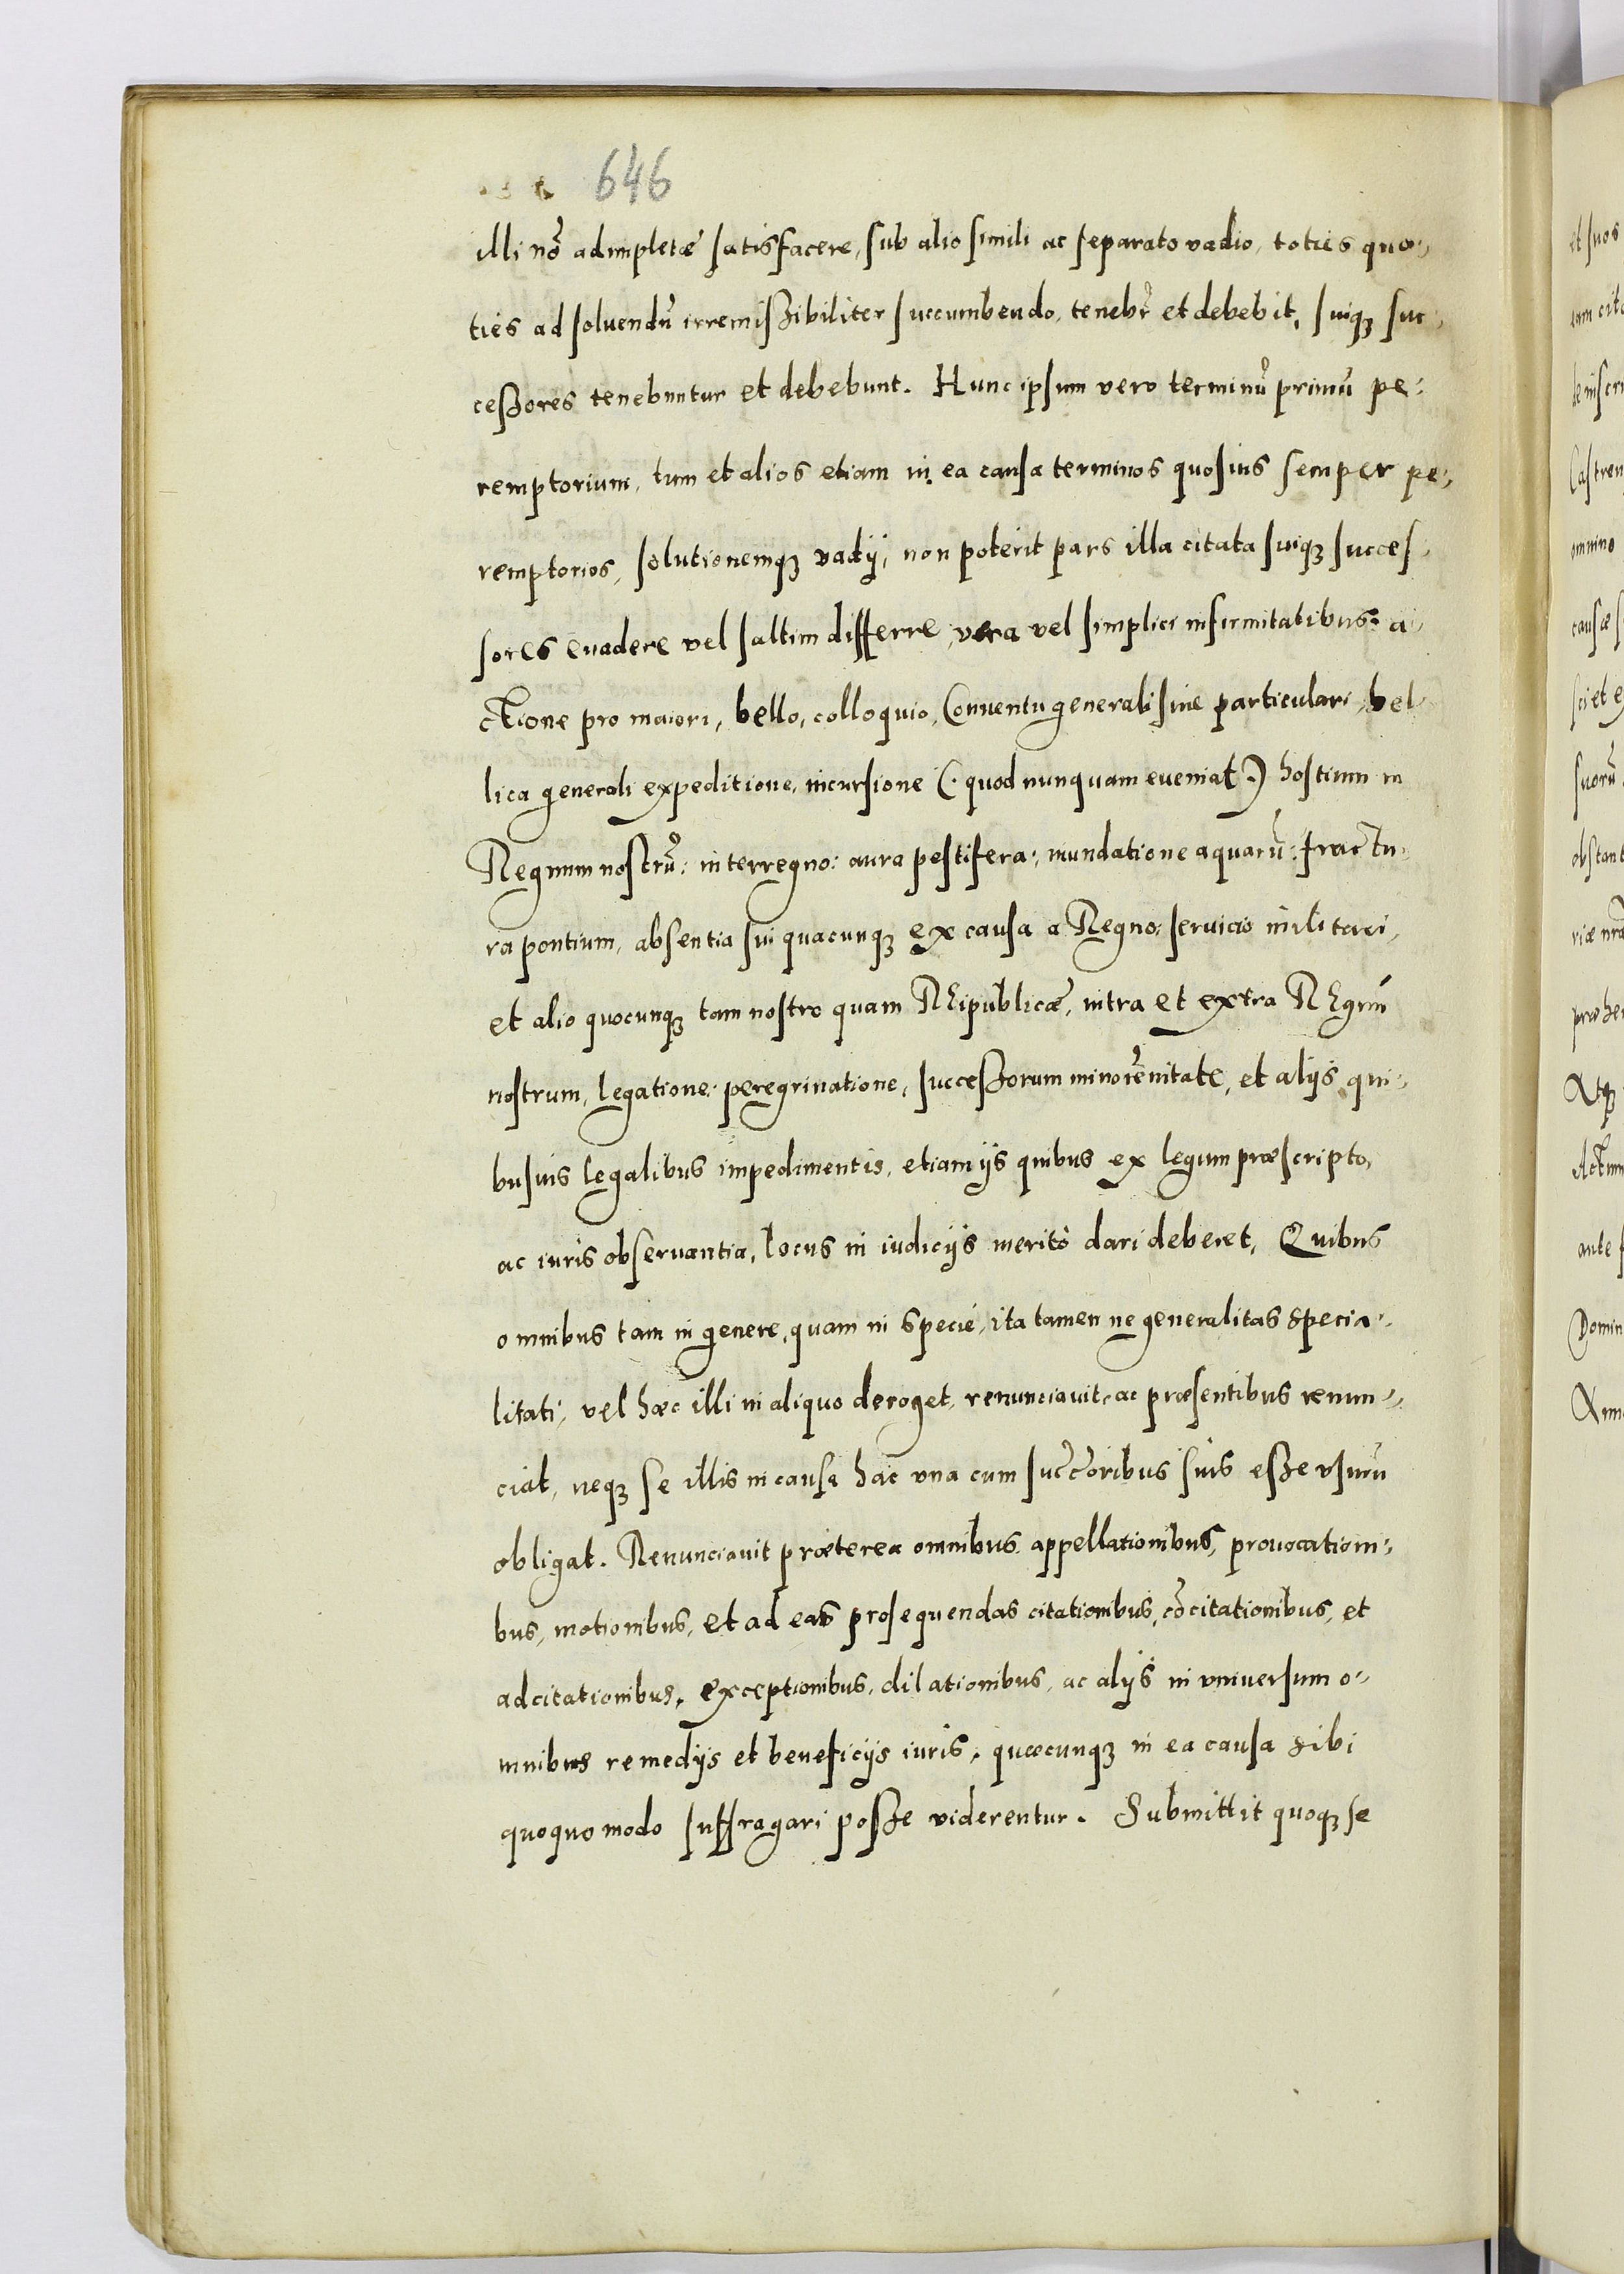 646
illi nõ adimpletæ satisfacere, sub alio simili ac separato vadio, toties quo-
ties ad soluendũ irremissibiliter succumbendo, tenebr̃ et debebit, suiqꝫ suc-
cessores tenebuntur et debebunt. Hunc ipsum vero terminũ primũ pe-
remptorium, tum et alios etiam in ea causa terminos quosuis semper pe-
remptorios, solutionemqꝫ vadij, non poterit pars illa citata suiqꝫ succes-
sores euadere vel saltim differre, vera vel simplici infirmitatibus: a-
ctione pro maiori, bello, colloquio, Conuentu generali siue particulari, bel-
lica generali expeditione, incursione (: quod nunquam eueniat :) hostium in
Regnum nostrũ: interregno: aura pestifera: inundatione aquarũ: fractu-
ra pontium, absentia sui quacunqꝫ ex causa a Regno: seruicio militari,
et alio quocunqꝫ tam nostro quam REipublicæ, intra et extra REgnũ
nostrum, legatione: peregrinatione, successorum minorẽnitate, et alijs qui-
busuis legalibus impedimentis, etiam ijs quibus ex legum præscripto,
ac iuris obseruantia, locus in iudicijs meritò dari deberet, Quibus
omnibus tam in genere, quam in specie, ita tamen ne generalitas specia-
litati, vel hæc illi in aliquo deroget, renunciauit, ac præsentibus renun-
ciat, neqꝫ se illis in causa hac vna cum succ̃oribus suis esse vsurũ
obligat. Renunciauit præterea omnibus appellationibus, prouocationi-
bus, motionibus, et ad eas prosequendas citationibus, cõcitationibus, et
adcitationibus, exceptionibus, dilationibus, ac alijs in vniuersum o-
mnibus remedijs et beneficijs iuris, quæcunqꝫ in ea causa sibi
quoquo modo suffragari posse viderentur. Submittit quoqꝫ se
et suos
Castren
omnino
causæ
sci et
suorũ
obstant
Vtqꝫ
Actum
ante
Domin